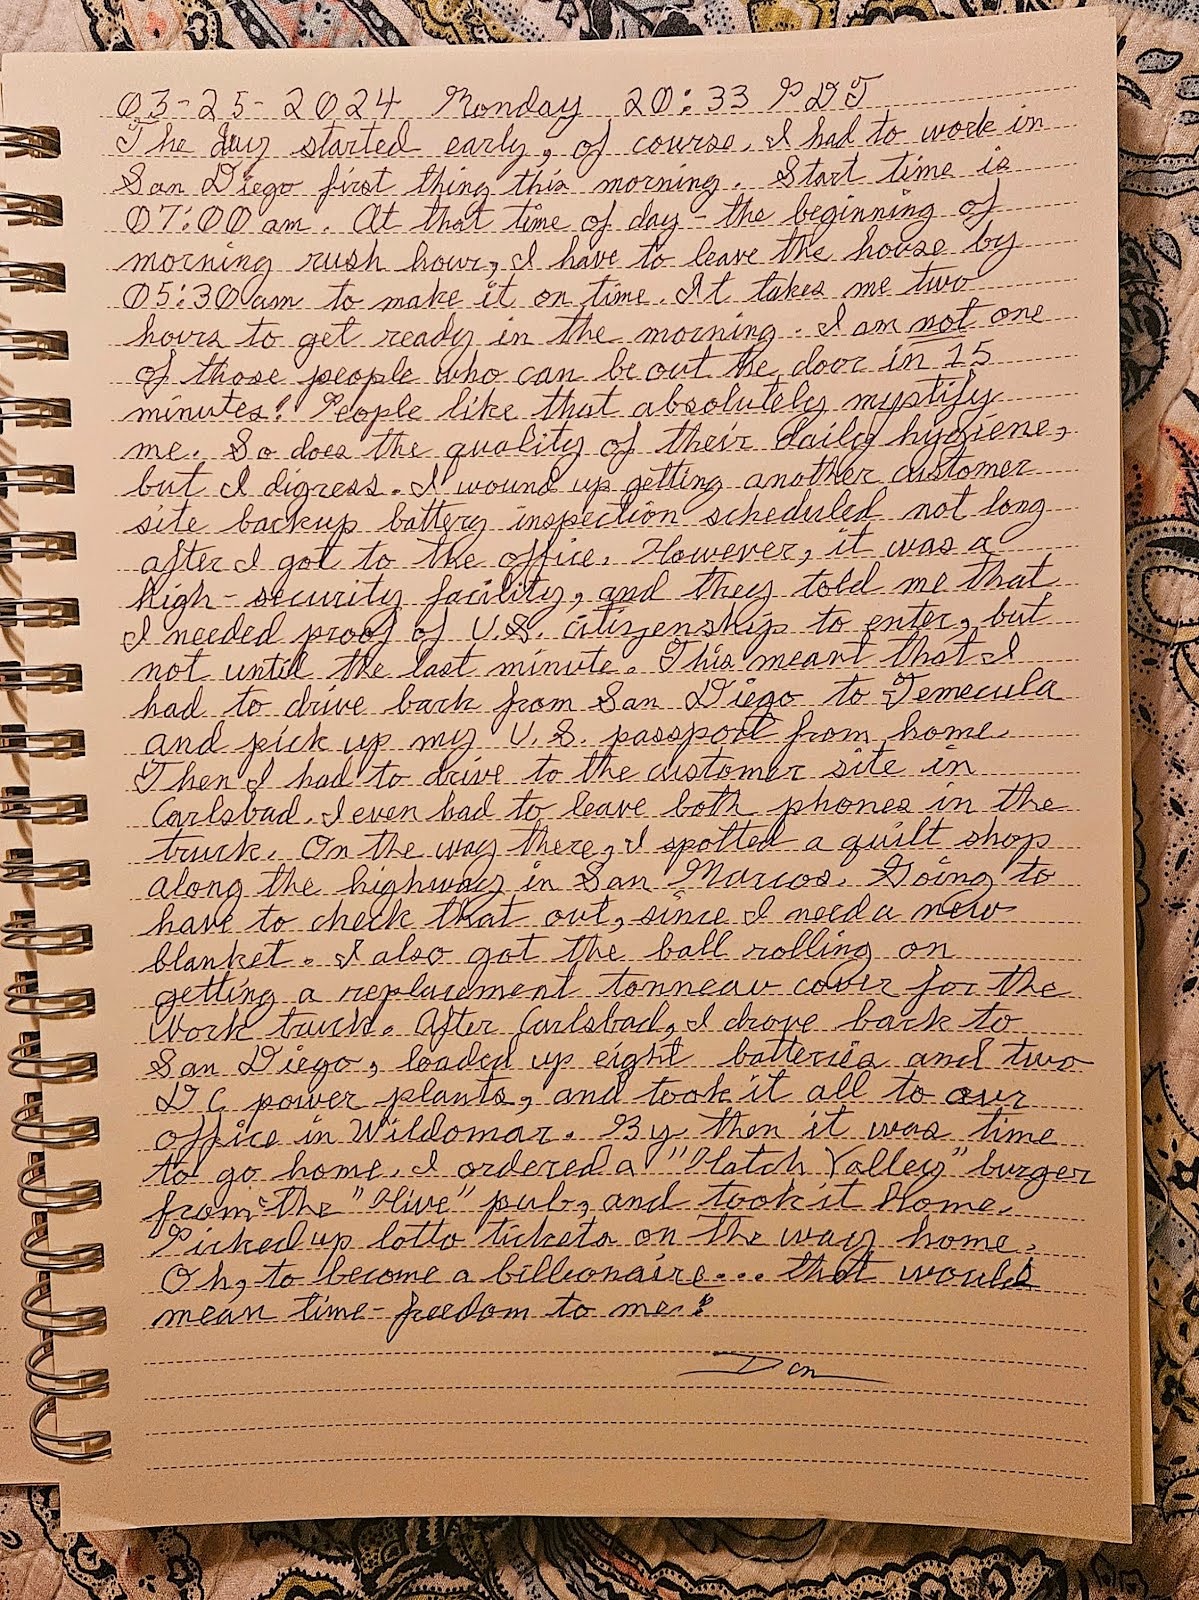 03-25-2024 Monday 20:33 PDT
The day started early, of course. I had to work in
San Diego first thing this morning. Start time is
07:00 am. At that time of day - the beginning of
morning rush hour, I have to leave the house by
05:30 am to make it on time. It takes me two
hours to get ready in the morning. I am not one
of those people who can be out the door in 15
minutes! People like that absolutely mystify
me. So does the quality of their daily hygiene,
but I digress. I wound up getting another customer
site backup battery inspection scheduled not long
after I got to the office. However, it was a
high-security facility, and they told me that
I needed proof of U.S. citizenship to enter, but
not until the last minute. This meant that I
had to drive back from San Diego to Temecula
and pick up my U.S. passport from home.
Then I had to drive to the customer site in
Carlsbad. I even had to leave both phones in the
truck. On the way there, I spotted a quilt shop
along the highway in San Marcos. Going to
have to check that out, since I need a new
blanket. I also got the ball rolling on
getting a replacement tonneau cover for the
work truck. After Carlsbad, I drove back to
San Diego, loaded up eight batteries and two
DC power plants, and took it all to our
office in Wildomar. By then it was time
to go home. I ordered a "Hatch Valley" burger
from the "Hive" pub, and took it home.
Picked up lotto tickets on the way home.
Oh, to become a billionaire... that would
mean time-freedom to me!
Dan